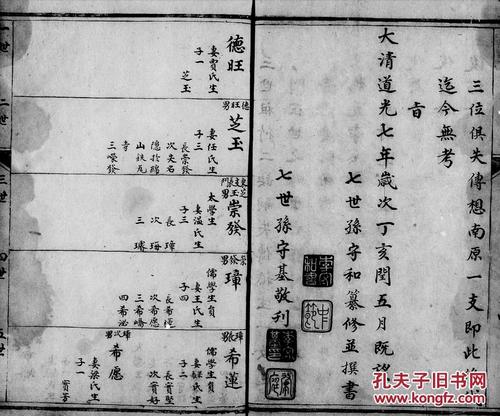 三位俱失傳想南原一支即此
迄今無考
旨
大清道光七年歲次丁亥閏五月既望
七世孫守和纂修並撰書
七世孫守基敬刊
一世
德旺
妻賈氏生
子一
芝玉
二世
德旺男
芝玉
妻任氏生
子三
長崇發
次失名
三世
崇發
太學生
妻溫氏生
子三
長璋
次海
三璿
四世
崇發男
璋
儒學生員
妻王氏生
子四
長希蓮
次希愿
三希
四希泌
五世
璋長男
希蓮
儒學生員
妻任氏生
子二
長實堅
次實好
璋次男
希愿
妻梁氏生
子一
實芳
孔夫子旧书网
KONGFZ.COM